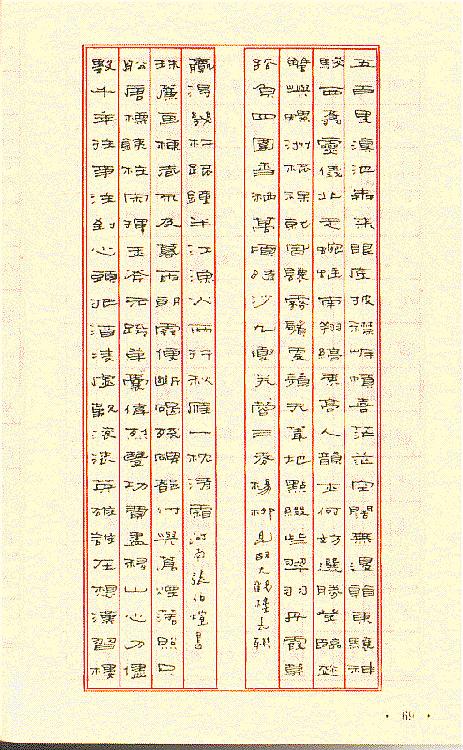 五百里滇池奔來眼底披襟岸幘喜茫茫空闊無邊看東驤神
駿西翥靈儀北走蜿蜒南翔縞素高人韻士何妨選勝登臨趁
蟹嶼螺洲梳裹就風鬟霧鬢更蘋天葦地點綴些翠羽丹霞莫
孤負四圍香稻萬頃晴沙九夏芙蓉三春楊柳 昆明大觀樓長聯
數千年往事注到心頭把酒凌虛歎滾滾英雄誰在想漢習樓
船唐標鐵柱宋揮玉斧元跨革囊偉烈豐功費盡移山心力儘
珠簾畫棟卷不及暮雨朝雲便斷碣殘碑都付與蒼煙落照只
贏得幾杵疏鐘半江漁火兩行秋雁一枕清霜 河南張伯書
· 69 ·